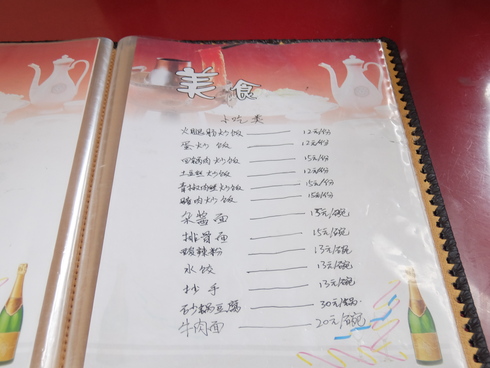 美食
小吃类
火腿肠炒饭 12元/份
蛋炒饭 12元/份
回锅肉炒饭 15元/份
土豆丝炒饭 12元/份
青椒肉丝炒饭 15元/份
腊肉炒饭 15元/份
杂酱面 13元/碗
排骨面 15元/碗
酸辣粉 13元/碗
水饺 13元/碗
抄手 13元/碗
砂锅豆腐 30元/锅
牛肉面 20元/碗